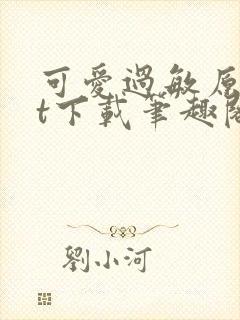 可愛過敏原
t下載筆趣閣
劉小河